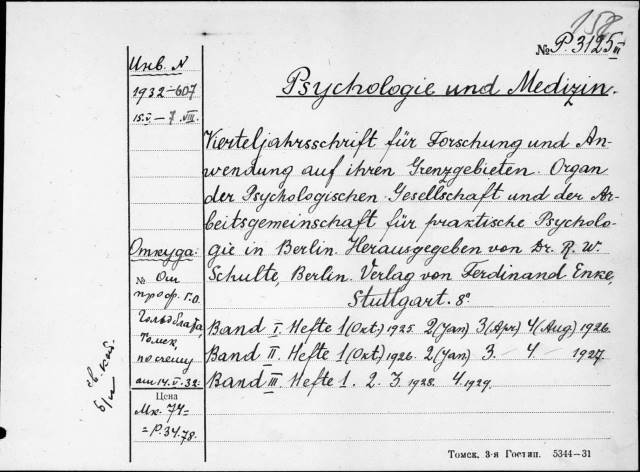 158
№ P. 3125 III
Psychologie und Medizin.
Vierteljahrsschrift für Forschung und An-
wendung auf ihren Grenzgebieten. Organ
der Psychologischen Gesellschaft und der Ar-
beitsgemeinschaft für praktische Psycholo-
gie in Berlin. Herausgegeben von Dr. R. W.
Schulte, Berlin. Verlag von Ferdinand Enke,
Stuttgart. 8º
Band I. Hefte 1(Oct) 1925. 2(Jan) 3(Apr) 4(Aug) 1926.
Band II. Hefte 1(Oct) 1926. 2(Jan) 3. - 4. - 1927.
Band III. Hefte 1. 2. 3. 1928. 4. 1929.
Инв. N
1932-607
15.V.-7 VIII.
Откуда:
№ От
проф. Г.О.
Гольдблата,
Томск,
по счету
от 14.V.32.
Цена
Мк. 74=
=Р.34.78.
б/и
Томск, 3-я Гостип. 5344—31